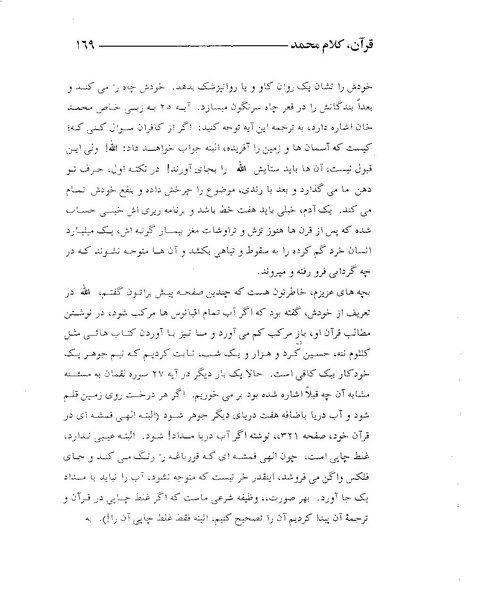 قرآن، کلام محمد ۱۶۹
خودش را نشان یک روان کاو و یا روانپزشک بدهد. خودش چاه را می کند و
بعداً بندگانش را در قعر چاه سرنگون میسازد. آیه ۲۵ به زبسی خاص محمد
خان اشاره دارد، به ترجمه این آیه توجه کنید: اگر از کافران سوال کنی که؛
کیست که آسمان ها و زمین را آفریده، البته جواب خواهند داد: الله! ولی این
قبول نیست، آن ها باید ستایش الله را بجای آورند! در نکته اول، حرف تو
دهن ما می گذارد و بعد با رندی، موضوع را چرخش داده و بنفع خودش تمام
می کند. یک آدم، خیلی باید هفت خط باشد و برنامه ریزی اش خیلی حساب
شده که پس از قرن ها هنوز تزش و تراوشات مغز بیمار گونه اش، یک میلیارد
انسان خرد گم کرده را به سقوط و تباهی بکشد و آن ها متوجه نشوند که در
چه گردابی فرو رفته و میروند.
بچه های عزیزم، خاطرتون هست که چندین صفحه پیش براتون گفتم، الله در
تعریف از خودش، گفته بود که اگر آب تمام اقیانوس ها مرکب شود، در نوشتن
مطالب قرآن او، باز مرکب کم می آورد و ما نیز با آوردن کتاب هائی مثل
کلثوم ننه، حسین کرد و هزار و یک شب، ثابت کردیم که نیم جوهر یک
خودکار بیک کافی است. حالا یک بار دیگر در آیه ۲۷ سوره لقمان به مسئله
مشابه آن چه قبلاً اشاره شده بود بر می خوریم. اگر هر درخت روی زمین قلم
شود و آب دریا باضافه هفت دریای دیگر جوهر شود (البته الهی قمشه ای در
قرآن خود، صفحه ۳۲۱،، نوشته اگر آب دریا مداد! شود. البته عیبی ندارد،
غلط چاپی است، چون الهی قمشه ای که قورباغه را رنگ می کند و جای
فلکس واگن می فروشد، اینقدر خر نیست که متوجه نشود، آب را نباید با مداد
یک جا آورد. بهر صورت،، وظیفه شرعی ماست که اگر غلط چاپی در قرآن و
ترجمهٔ آن پیدا کردیم آن را تصحیح کنیم، البته فقط غلط چاپی آن را!). به